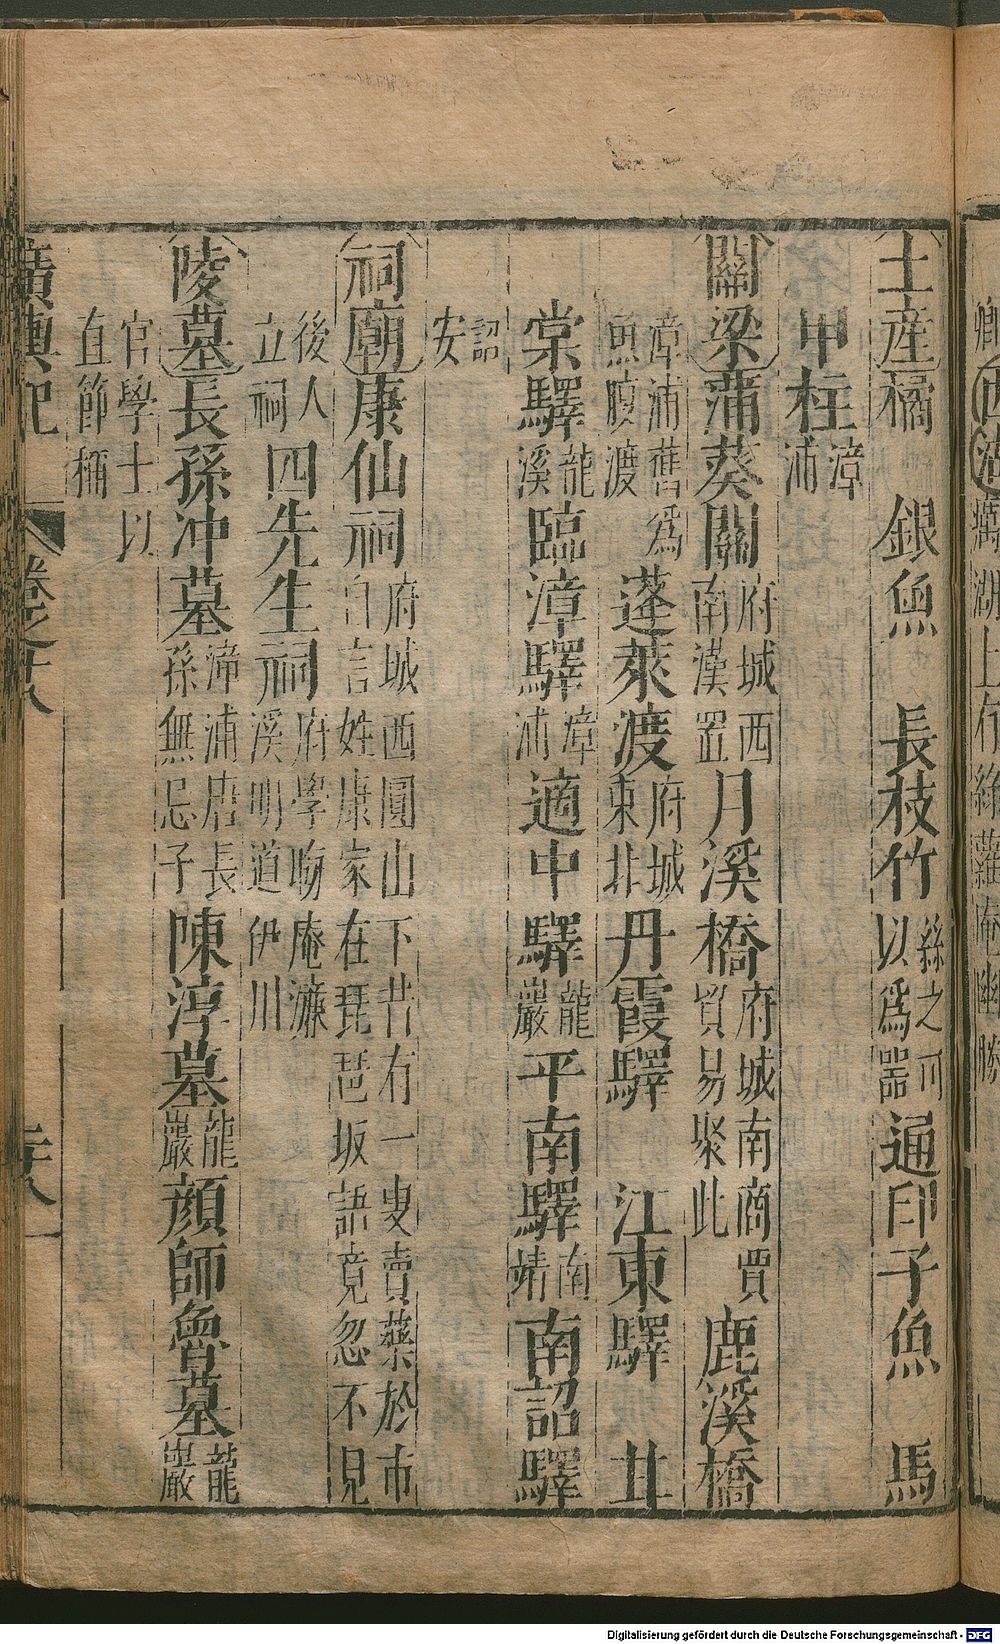 土産橘 銀魚 長枝竹絲之可以爲器通印子魚 馬
甲柱漳浦
關梁蒲葵關府城西南漢置月溪橋府城南商賈貿易聚此 鹿溪橋
漳浦舊爲魚腹渡 蓬萊渡府城東北丹霞驛 江東驛 甘
棠驛龍溪臨漳驛漳浦適中驛龍巖平南驛南靖南詔驛
詔安
祠廟康仙祠府城西圓山下昔有一叟賣藥於市自言姓康家在琵琶坂語竟忽不見
後人立祠四先生祠府學晦庵濂溪明道伊川
陵墓長孫冲墓漳浦唐長孫無忌子陳淳墓龍巖顔師魯墓龍巖
官學士以直節稱
廣輿記 卷之十八 二十八
Digitalisierung gefördert durch die Deutsche Forschungsgemeinschaft - DFG